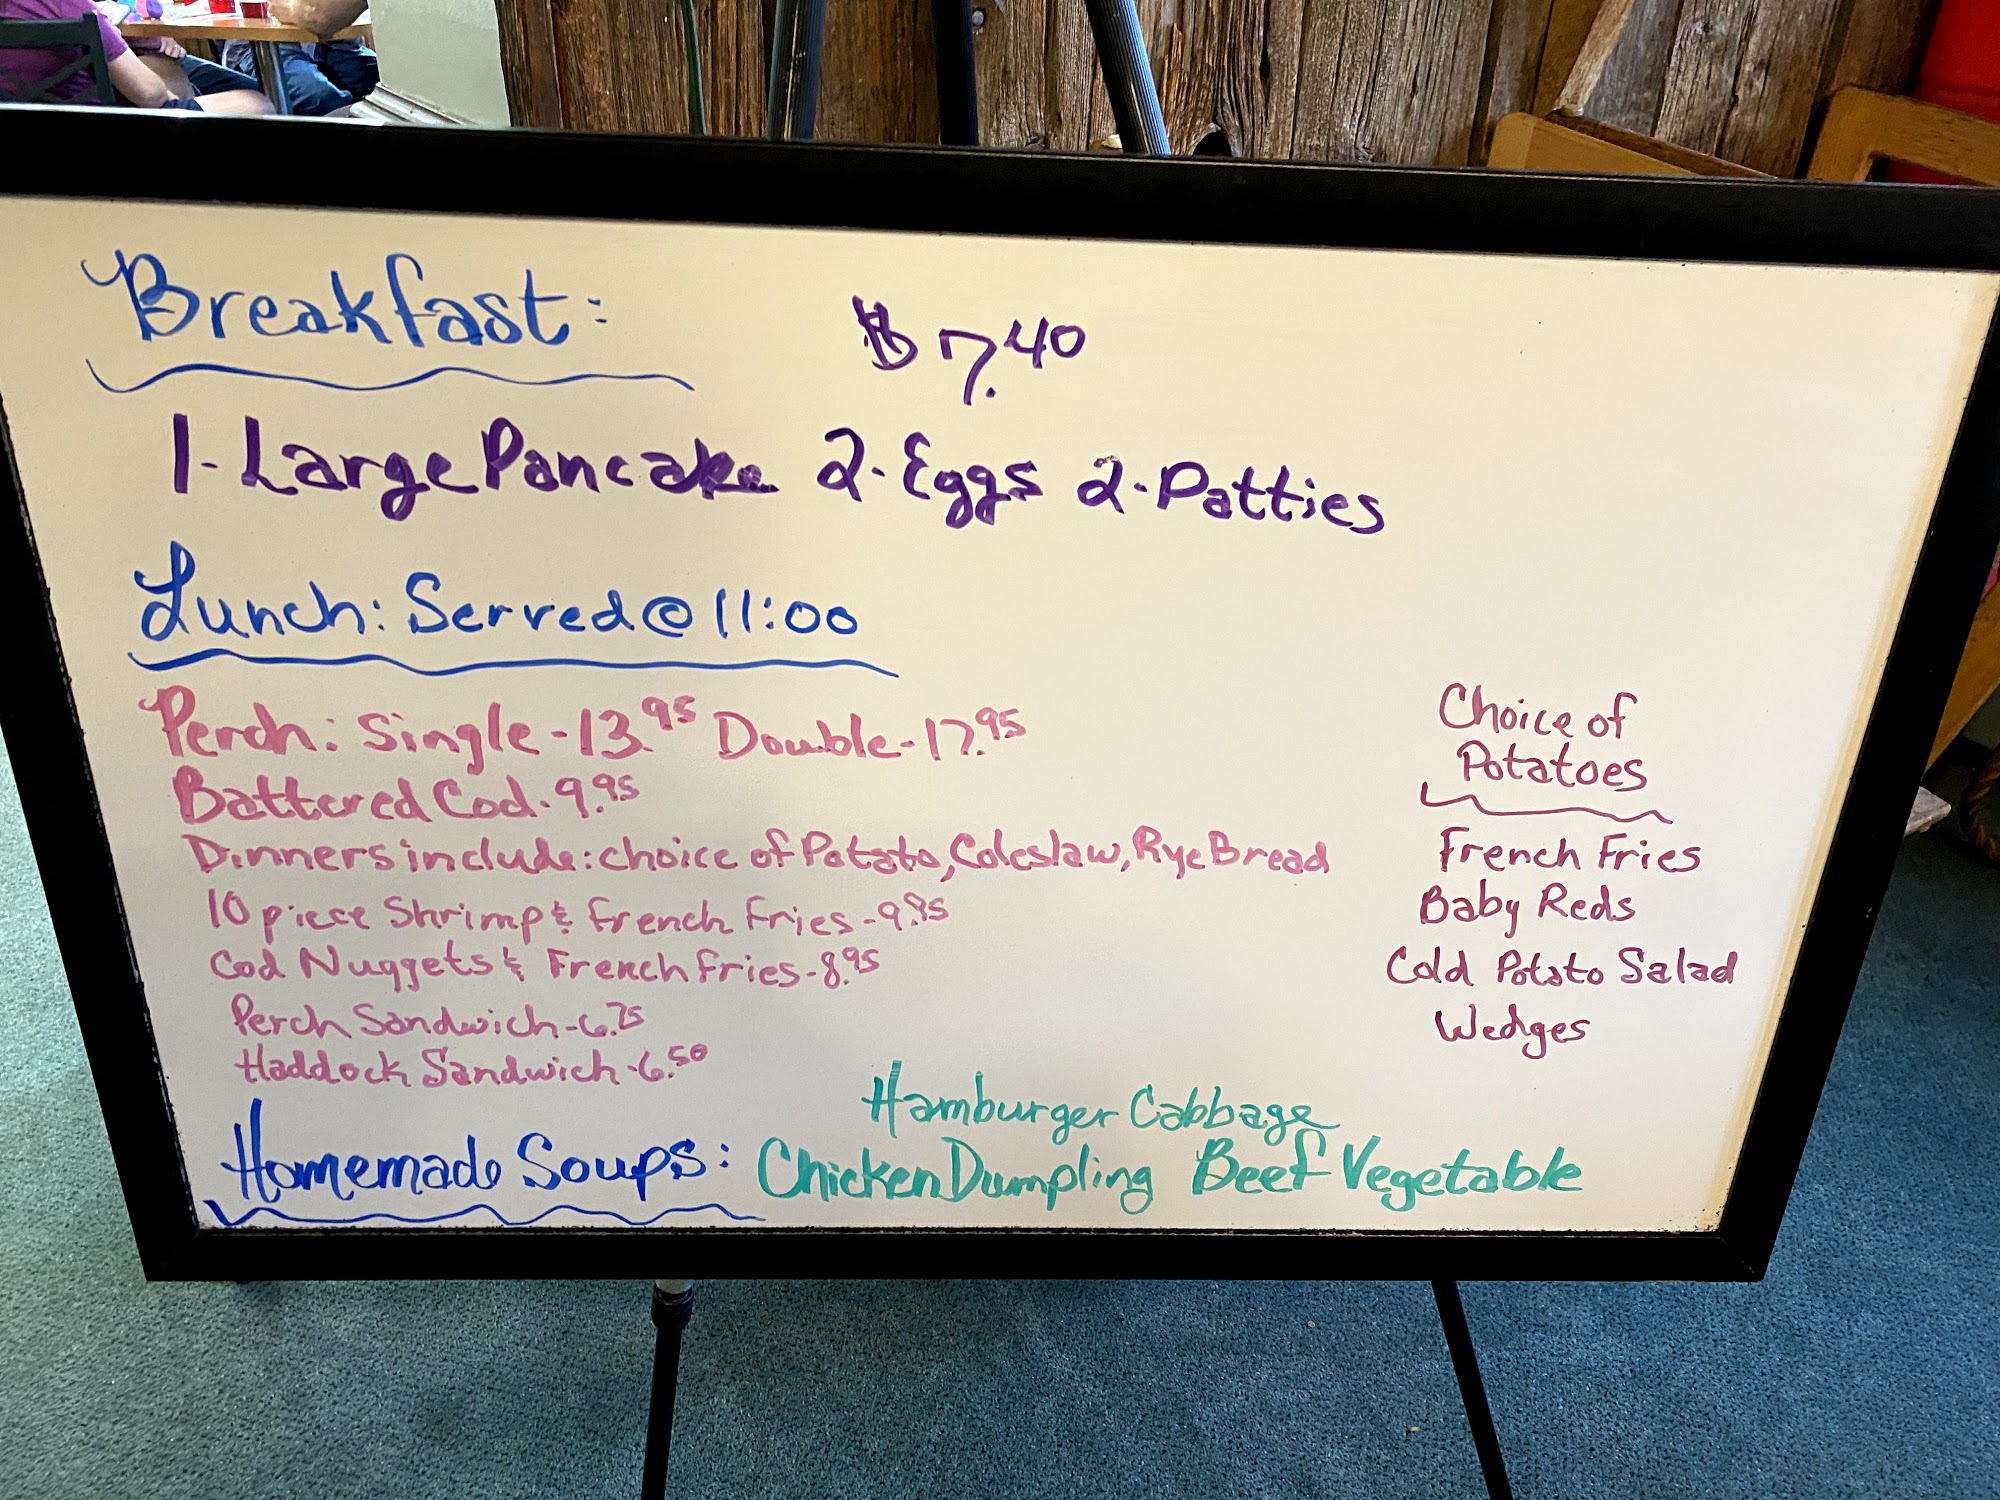 Breakfast: $7.40
1-Large Pancake 2-Eggs 2-Patties
Lunch: Served @ 11:00
Perch: Single-13.95 Double-17.95
Battered Cod-9.95
Dinners include: choice of Potato, Coleslaw, Rye Bread
10 piece Shrimp & French Fries-9.95
Cod Nuggets & French Fries-8.95
Perch Sandwich-6.75
Haddock Sandwich-6.50
Choice of
Potatoes
French Fries
Baby Reds
Cold Potato Salad
Wedges
Hamburger Cabbage
Homemade Soups: Chicken Dumpling Beef Vegetable